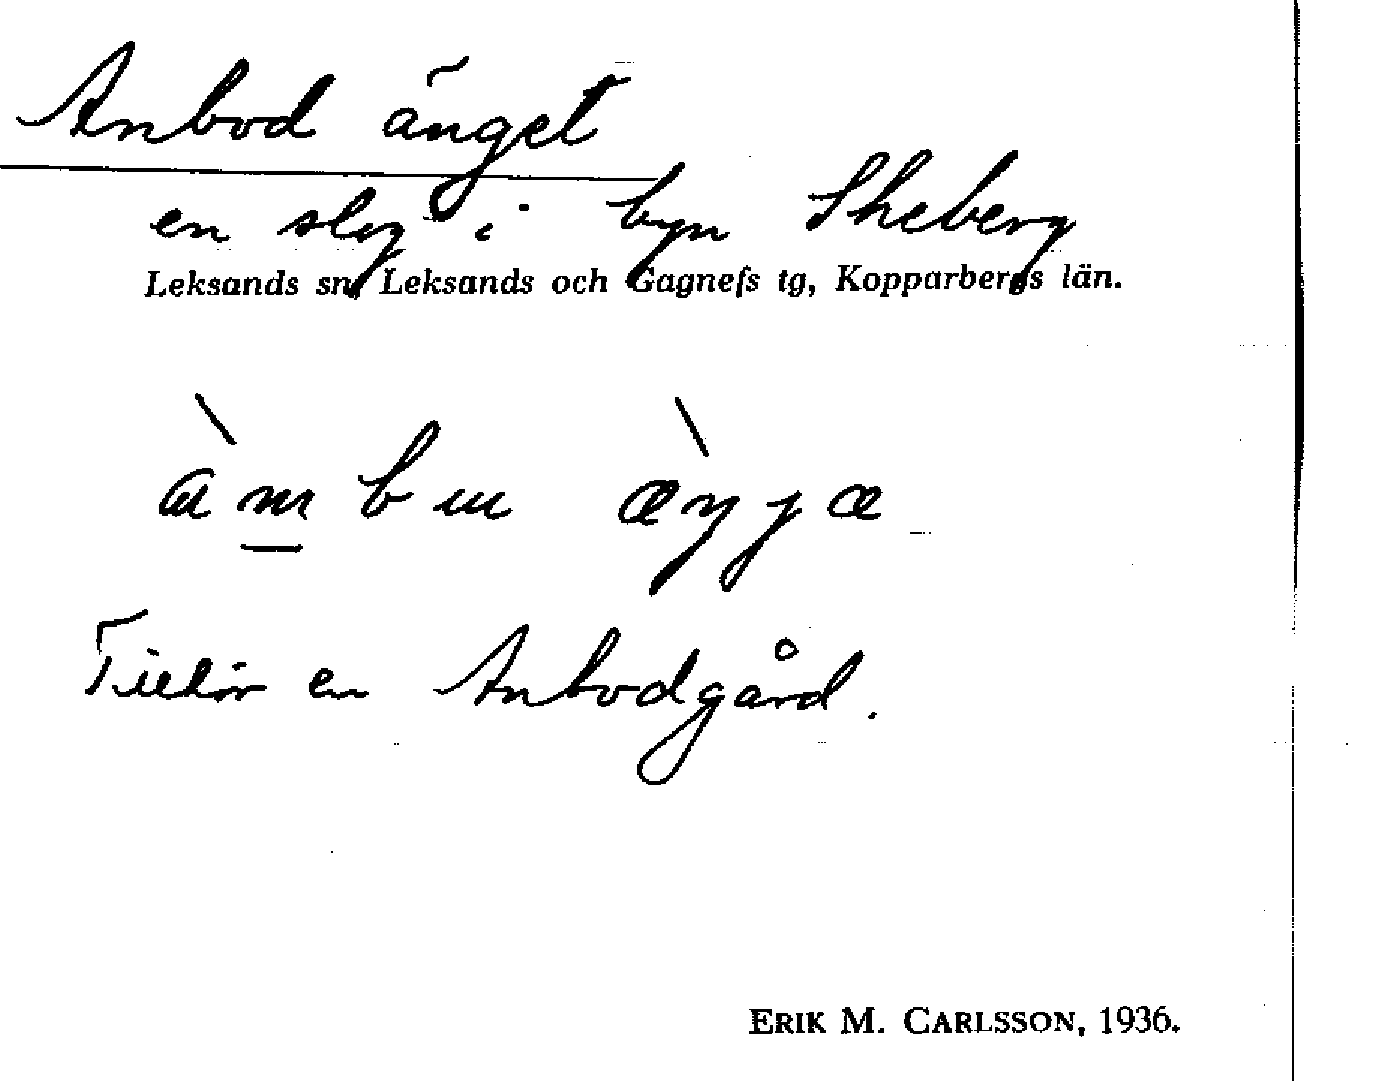 Anbod änget
en slog i byn Skeberg
Leksands sn, Leksands och Gagnefs tg, Kopparbergs län.
àm̲bu æ̀ŋjæ
Tillhör en Anbodgård.
ERIK M. CARLSSON, 1936.